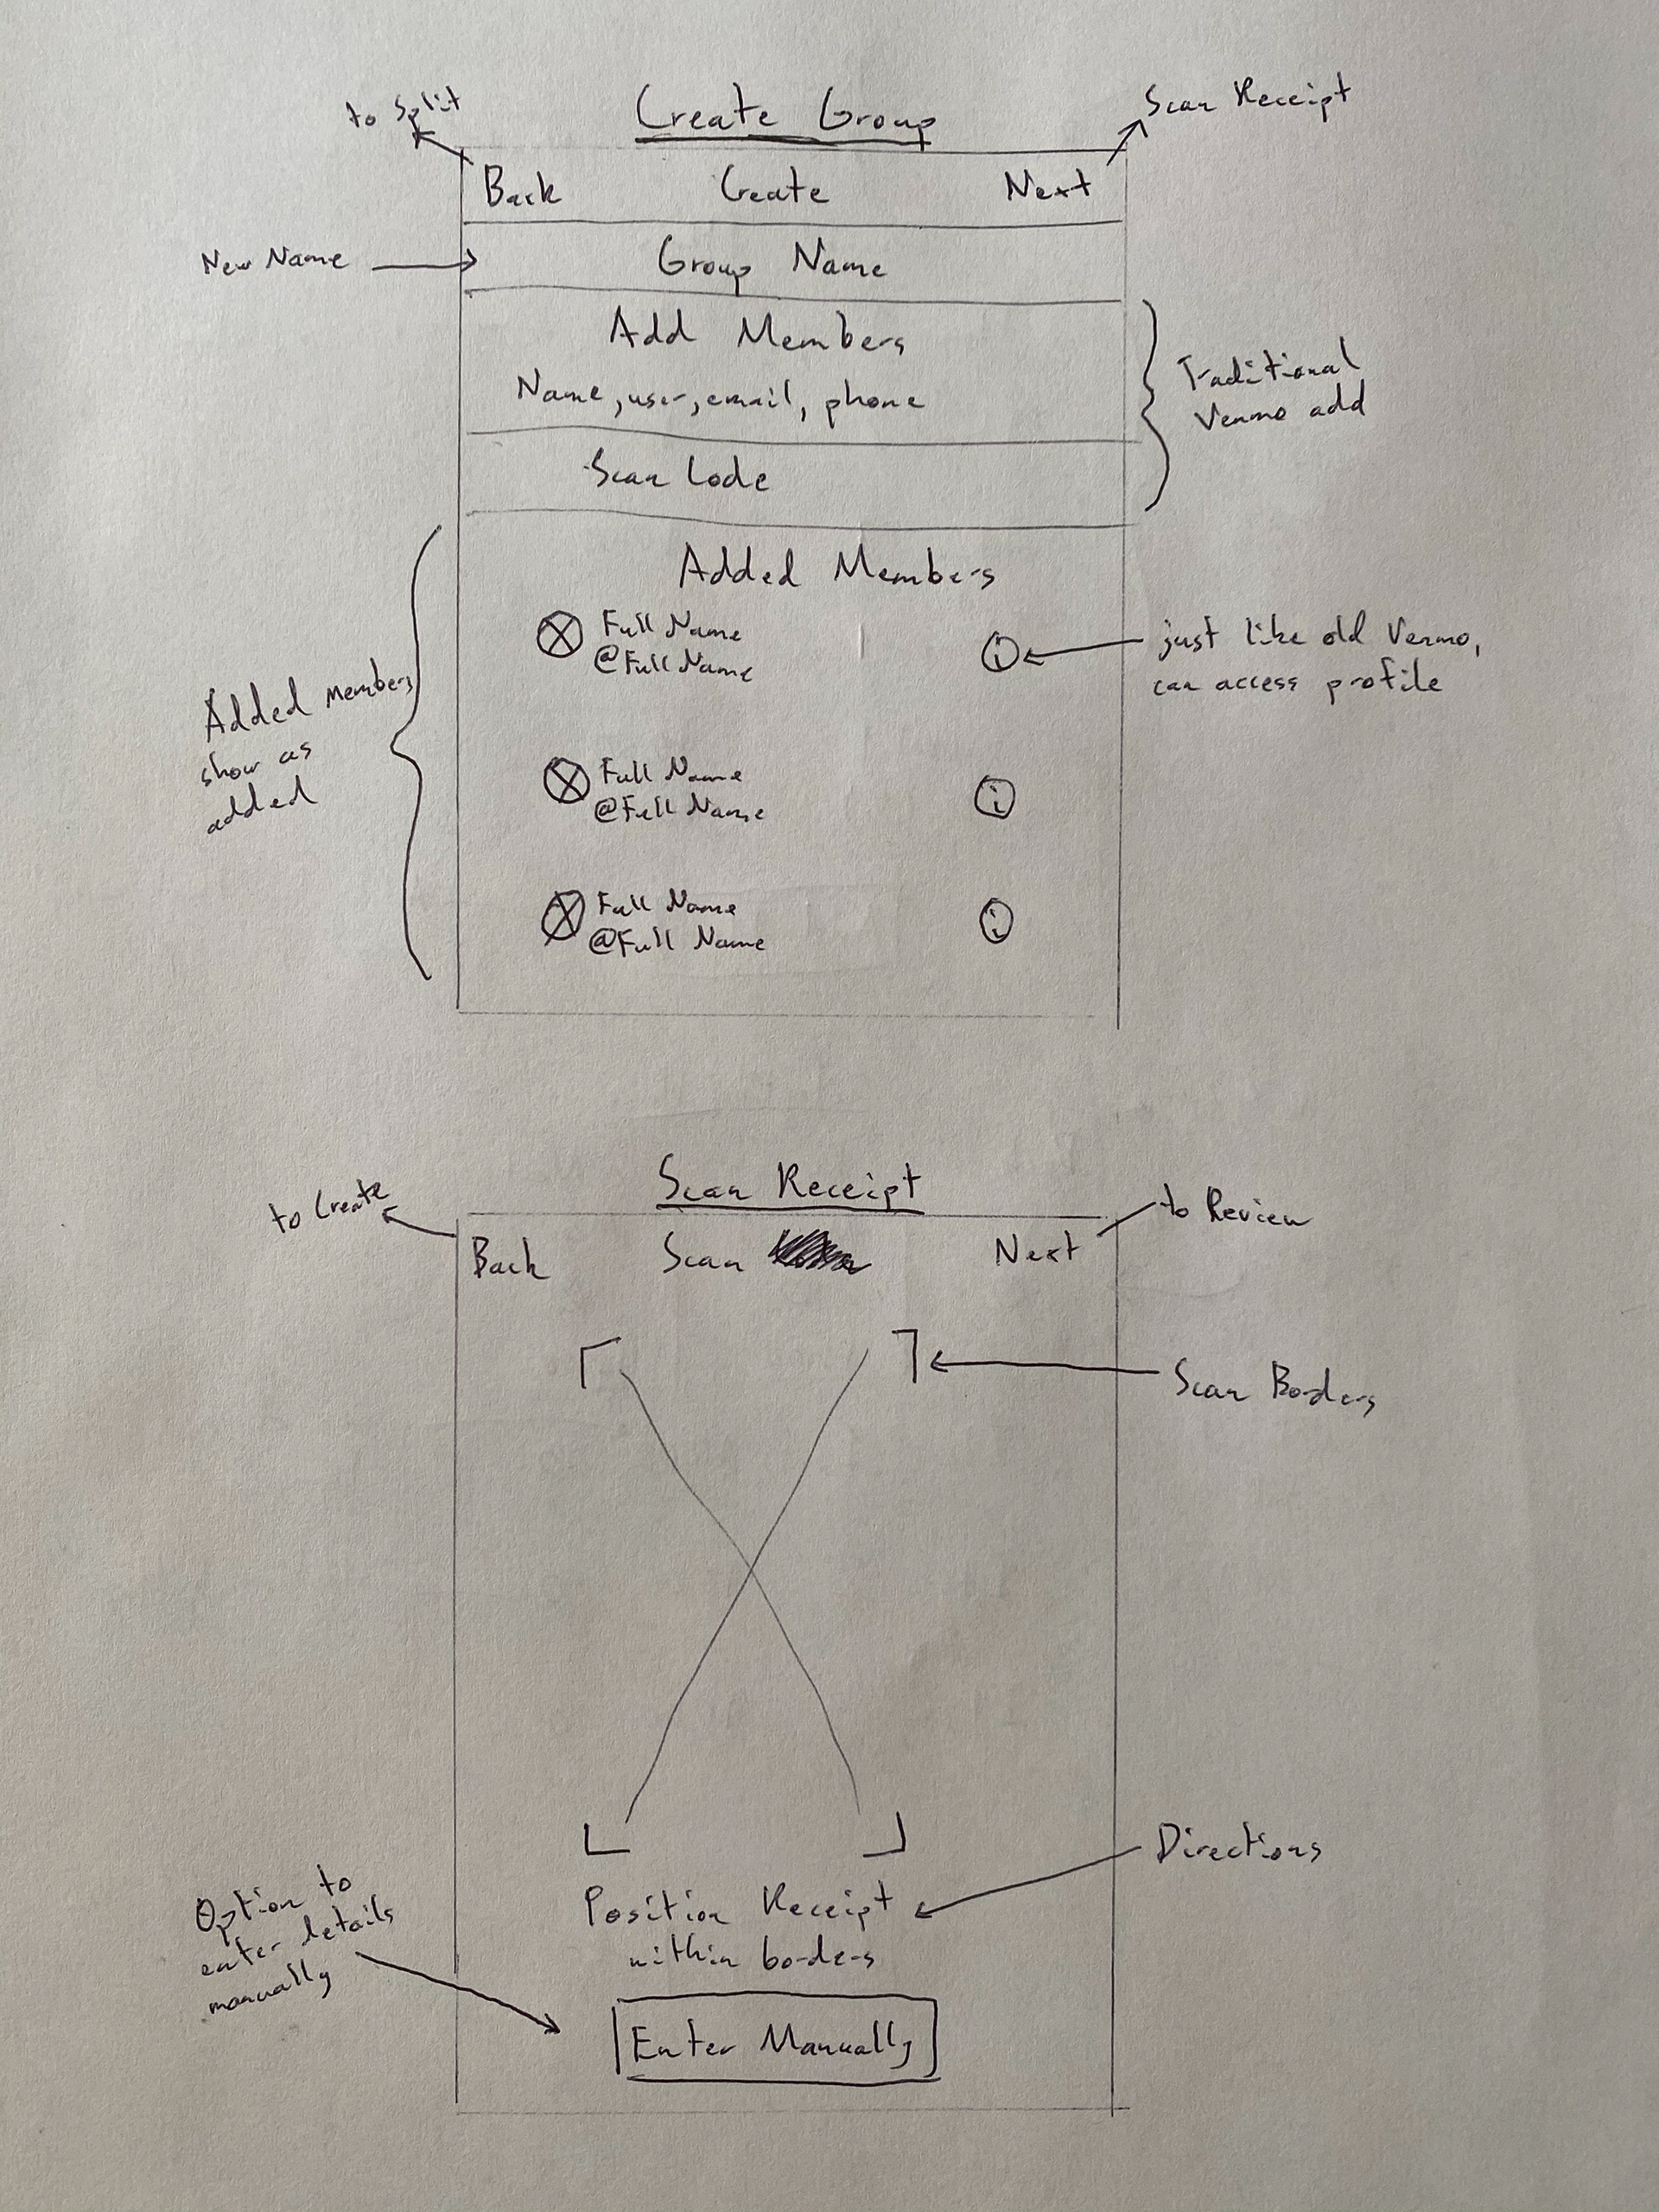 to Split
Create Group
Scan Receipt
Back Create Next
New Name
Group Name
Add Members
Name, user, email, phone
Traditional
Venmo add
Scan Code
Added Members
Full Name
@Full Name
i
just like old Venmo,
can access profile
Added Members
show as
added
Full Name
@Full Name
i
Full Name
@Full Name
i
Scan Receipt
to Create
to Review
Back Scan Next
Scan Borders
Directions
Position Receipt
within borders
Option to
enter details
manually
Enter Manually